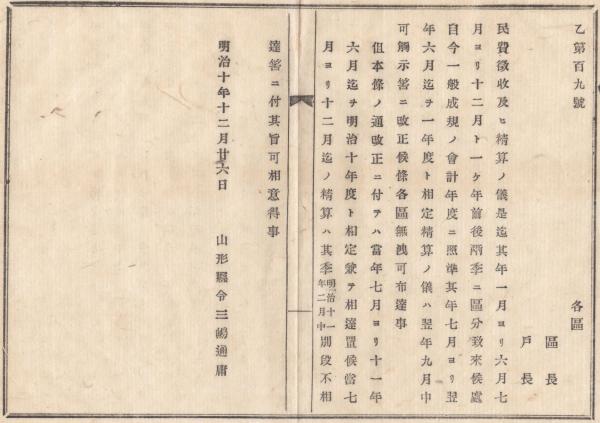 乙第百九號
各區
區長
戶長
民費徵收及ヒ精算ノ儀是迄其年一月ヨリ六月七
月ヨリ十二月ト一ケ年前後兩季ニ區分致來候處
自今一般成規ノ會計年度ニ照準其年七月ヨリ翌
年六月迄ヲ一年度ト相定精算ノ儀ハ翌年九月中
可觸示筈ニ改正候條各區無洩可布達事
但本條ノ通改正ニ付テハ當年七月ヨリ十一年
六月迄ヲ明治十年度ト相定兼テ相達置候當七
月ヨリ十二月迄ノ精算ハ其季明治十一年二月中別段不相
達筈ニ付其旨可相意得事
明治十年十二月廿六日
山形縣令三嶋通庸